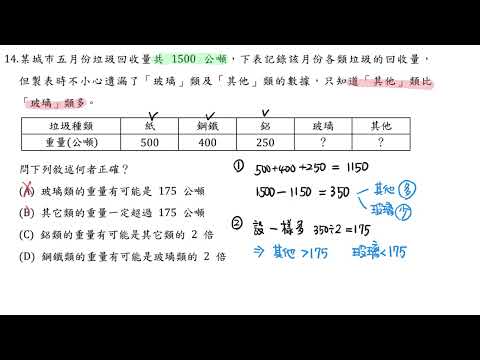 14.某城市五月份垃圾回收量共 1500 公噸，下表記錄該月份各類垃圾的回收量，
但製表時不小心遺漏了「玻璃」類及「其他」類的數據，只知道「其他」類比
「玻璃」類多。
垃圾種類 紙 鋼鐵 鋁 玻璃 其他
重量(公噸) 500 400 250 ? ?
問下列敘述何者正確？
(A) 玻璃類的重量有可能是 175 公噸
(B) 其它類的重量一定超過 175 公噸
(C) 鋁類的重量有可能是其它類的 2 倍
(D) 鋼鐵類的重量有可能是玻璃類的 2 倍
① 500+400+250 = 1150
1500-1150 = 350
其他 多
玻璃 少
② 設一樣多 350÷2=175
⇒ 其他 >175 玻璃<175